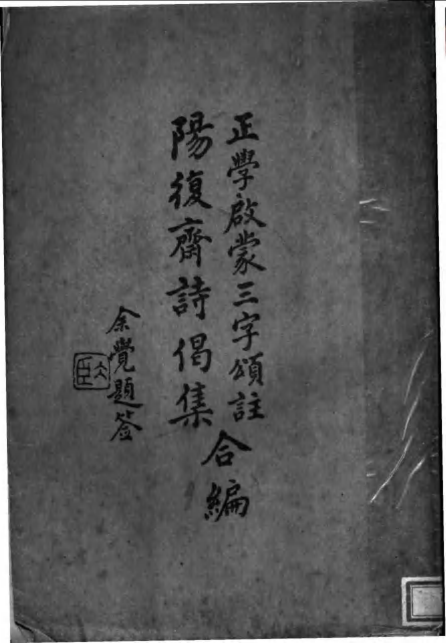 正學啟蒙三字頌註
陽復齋詩偈集
合編
余覺題签